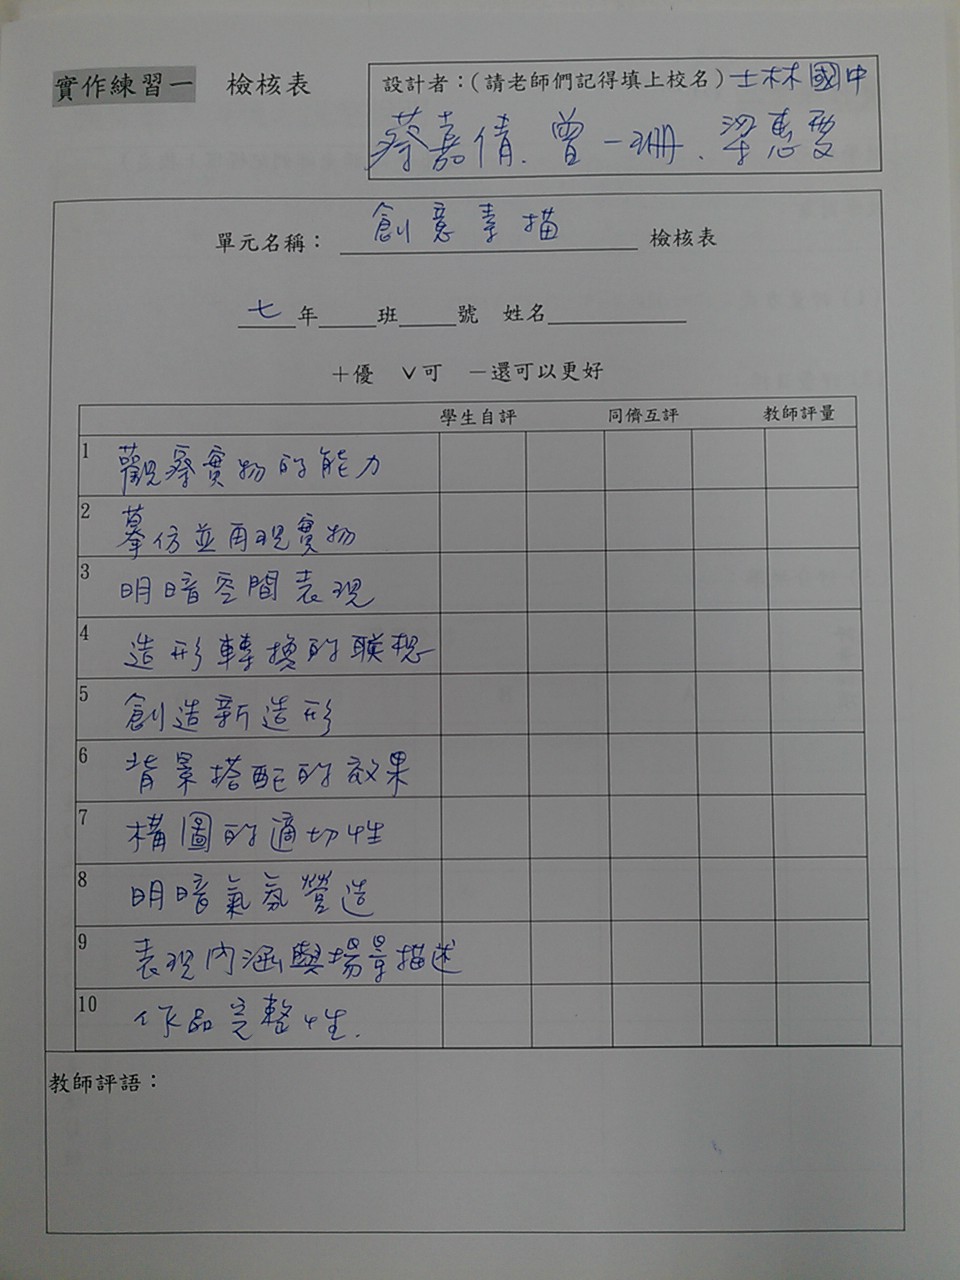 實作練習一 檢核表
設計者：（請老師們記得填上校名）士林國中
蔡嘉倩、曾一珊、梁惠雯
單元名稱：創意素描 檢核表
七年____班____號 姓名________
＋優 ∨可 －還可以更好
學生自評 同儕互評 教師評量
1 觀察實物的能力
2 摹仿並再現實物
3 明暗空間表現
4 造形轉換的联想
5 創造新造形
6 背景搭配的效果
7 構圖的適切性
8 明暗氣氛營造
9 表現內涵與場景描述
10 作品完整性.
教師評語：